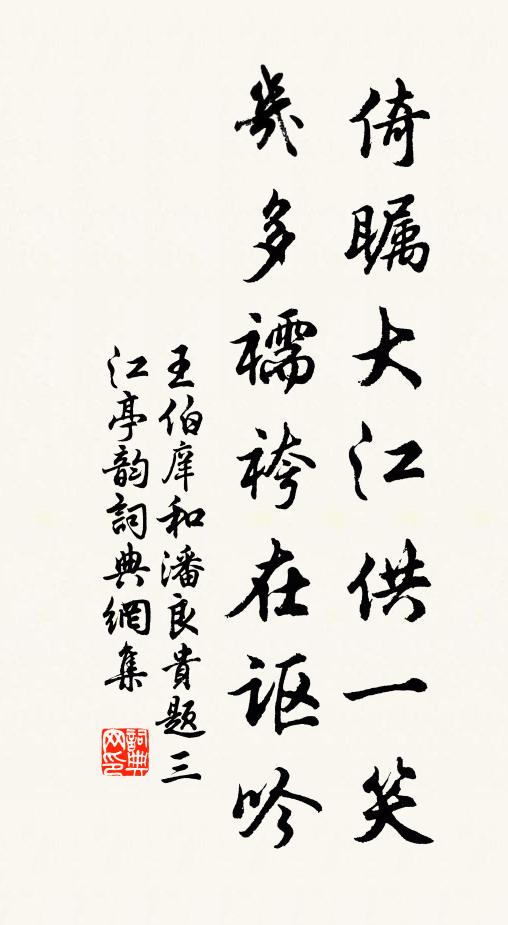 倚瞩大江供一笑
几多襦袴在讴吟
王伯庠和潘良貴題三
江亭韵詞典網集
詞典
网印